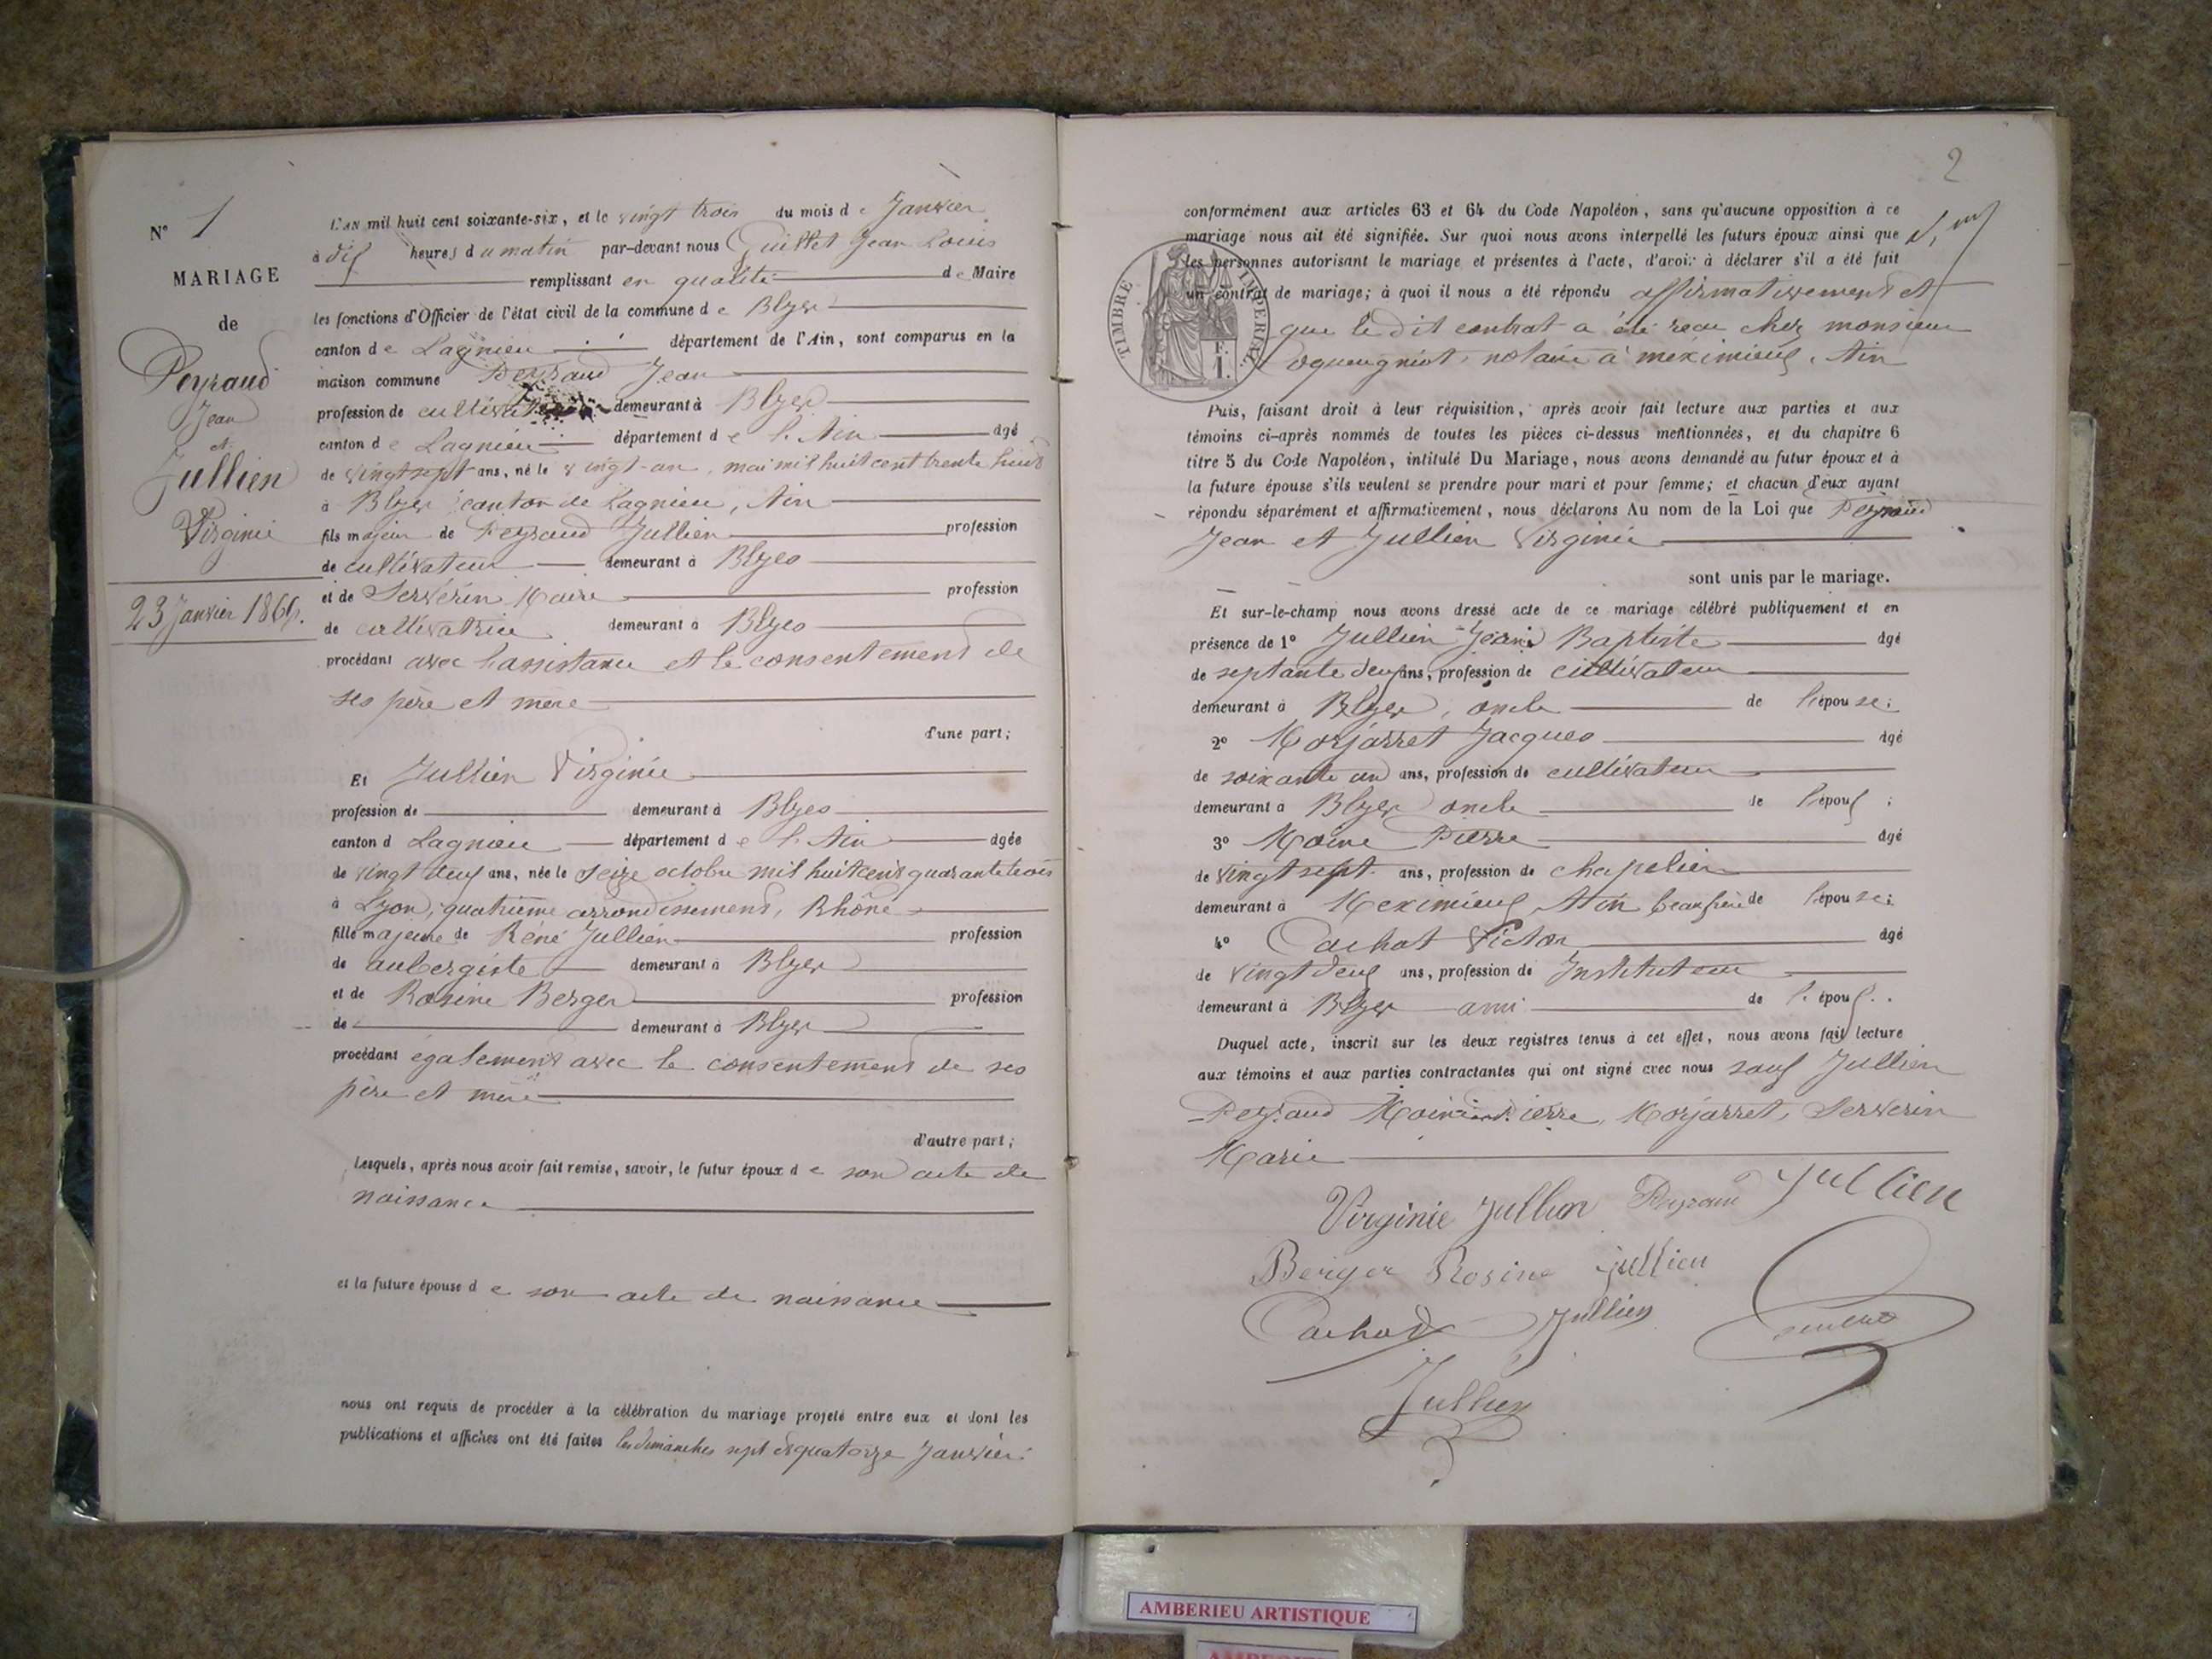 N° 1
MARIAGE
de
Peyraud
Jean
et
Jullien
Virginie
23 Janvier 1866.
L'AN mil huit cent soixante-six, et le vingt trois du mois de Janvier
à dix heures du matin par-devant nous Guillet Jean Louis
remplissant en qualité de Maire
les fonctions d'Officier de l'état civil de la commune de Blyes
canton de Lagnieu département de l'Ain, sont comparus en la
maison commune Peyraud Jean
profession de cultivateur demeurant à Blyes
canton de Lagnieu département de l'Ain âgé
de vingt sept ans, né le vingt-un mai mil huit cent trente huit
à Blyes canton de Lagnieu, Ain
fils majeur de Peyraud Jullien profession
de cultivateur demeurant à Blyes
et de Servérin Marie profession
de cultivatrice demeurant à Blyes
procédant avec l'assistance et le consentement de
ses père et mère
d'une part;
Et Jullien Virginie
profession de demeurant à Blyes
canton d Lagnieu département de l'Ain âgée
de vingt deux ans, née le seize octobre mil huit cent quarante trois
à Lyon, quatrième arrondissement, Rhône
fille majeure de Réné Jullien profession
de aubergiste demeurant à Blyes
et de Rosine Berger profession
de demeurant à Blyes
procédant également avec le consentement de ses
père et mère
d'autre part;
Lesquels, après nous avoir fait remise, savoir, le futur époux de son acte de
naissance
et la future épouse de son acte de naissance
nous ont requis de procéder à la célébration du mariage projeté entre eux et dont les
publications et affiches ont été faites les dimanches sept et quatorze Janvier
2
conformément aux articles 63 et 64 du Code Napoléon, sans qu'aucune opposition à ce
mariage nous ait été signifiée. Sur quoi nous avons interpellé les futurs époux ainsi que
les personnes autorisant le mariage et présentes à l'acte, d'avoir à déclarer s'il a été fait
un contrat de mariage; à quoi il nous a été répondu affirmativement et
que le dit contrat a été reçu chez monsieur
notaire à méximieux, Ain
TIMBRE IMPERIAL
F.
1.
Puis, faisant droit à leur réquisition, après avoir fait lecture aux parties et aux
témoins ci-après nommés de toutes les pièces ci-dessus mentionnées, et du chapitre 6
titre 5 du Code Napoléon, intitulé Du Mariage, nous avons demandé au futur époux et à
la future épouse s'ils veulent se prendre pour mari et pour femme; et chacun d'eux ayant
répondu séparément et affirmativement, nous déclarons Au nom de la Loi que Peyraud
Jean et Jullien Virginie
sont unis par le mariage.
Et sur-le-champ nous avons dressé acte de ce mariage célébré publiquement et en
présence de 1° Jullien Jean Baptiste âgé
de septante deux ans, profession de cultivateur
demeurant à Blyes, oncle de l'épouse;
2° Morjarret Jacques âgé
de soixante un ans, profession de cultivateur
demeurant à Blyes oncle de l'époux;
3° Moine Pierre âgé
de vingt sept ans, profession de chapelier
demeurant à Meximieux, Ain beau frère de l'épouse;
4° Cachat Victor âgé
de vingt deux ans, profession de Instituteur
demeurant à Blyes ami de l'époux.
Duquel acte, inscrit sur les deux registres tenus à cet effet, nous avons fait lecture
aux témoins et aux parties contractantes qui ont signé avec nous sauf Jullien
Peyraud Moine Pierre, Morjarret, Serverin
Marie
Virginie Jullien Peyraud Jullien
Berger Rosine jullien
Cachat Jullien
Jullien
AMBERIEU ARTISTIQUE